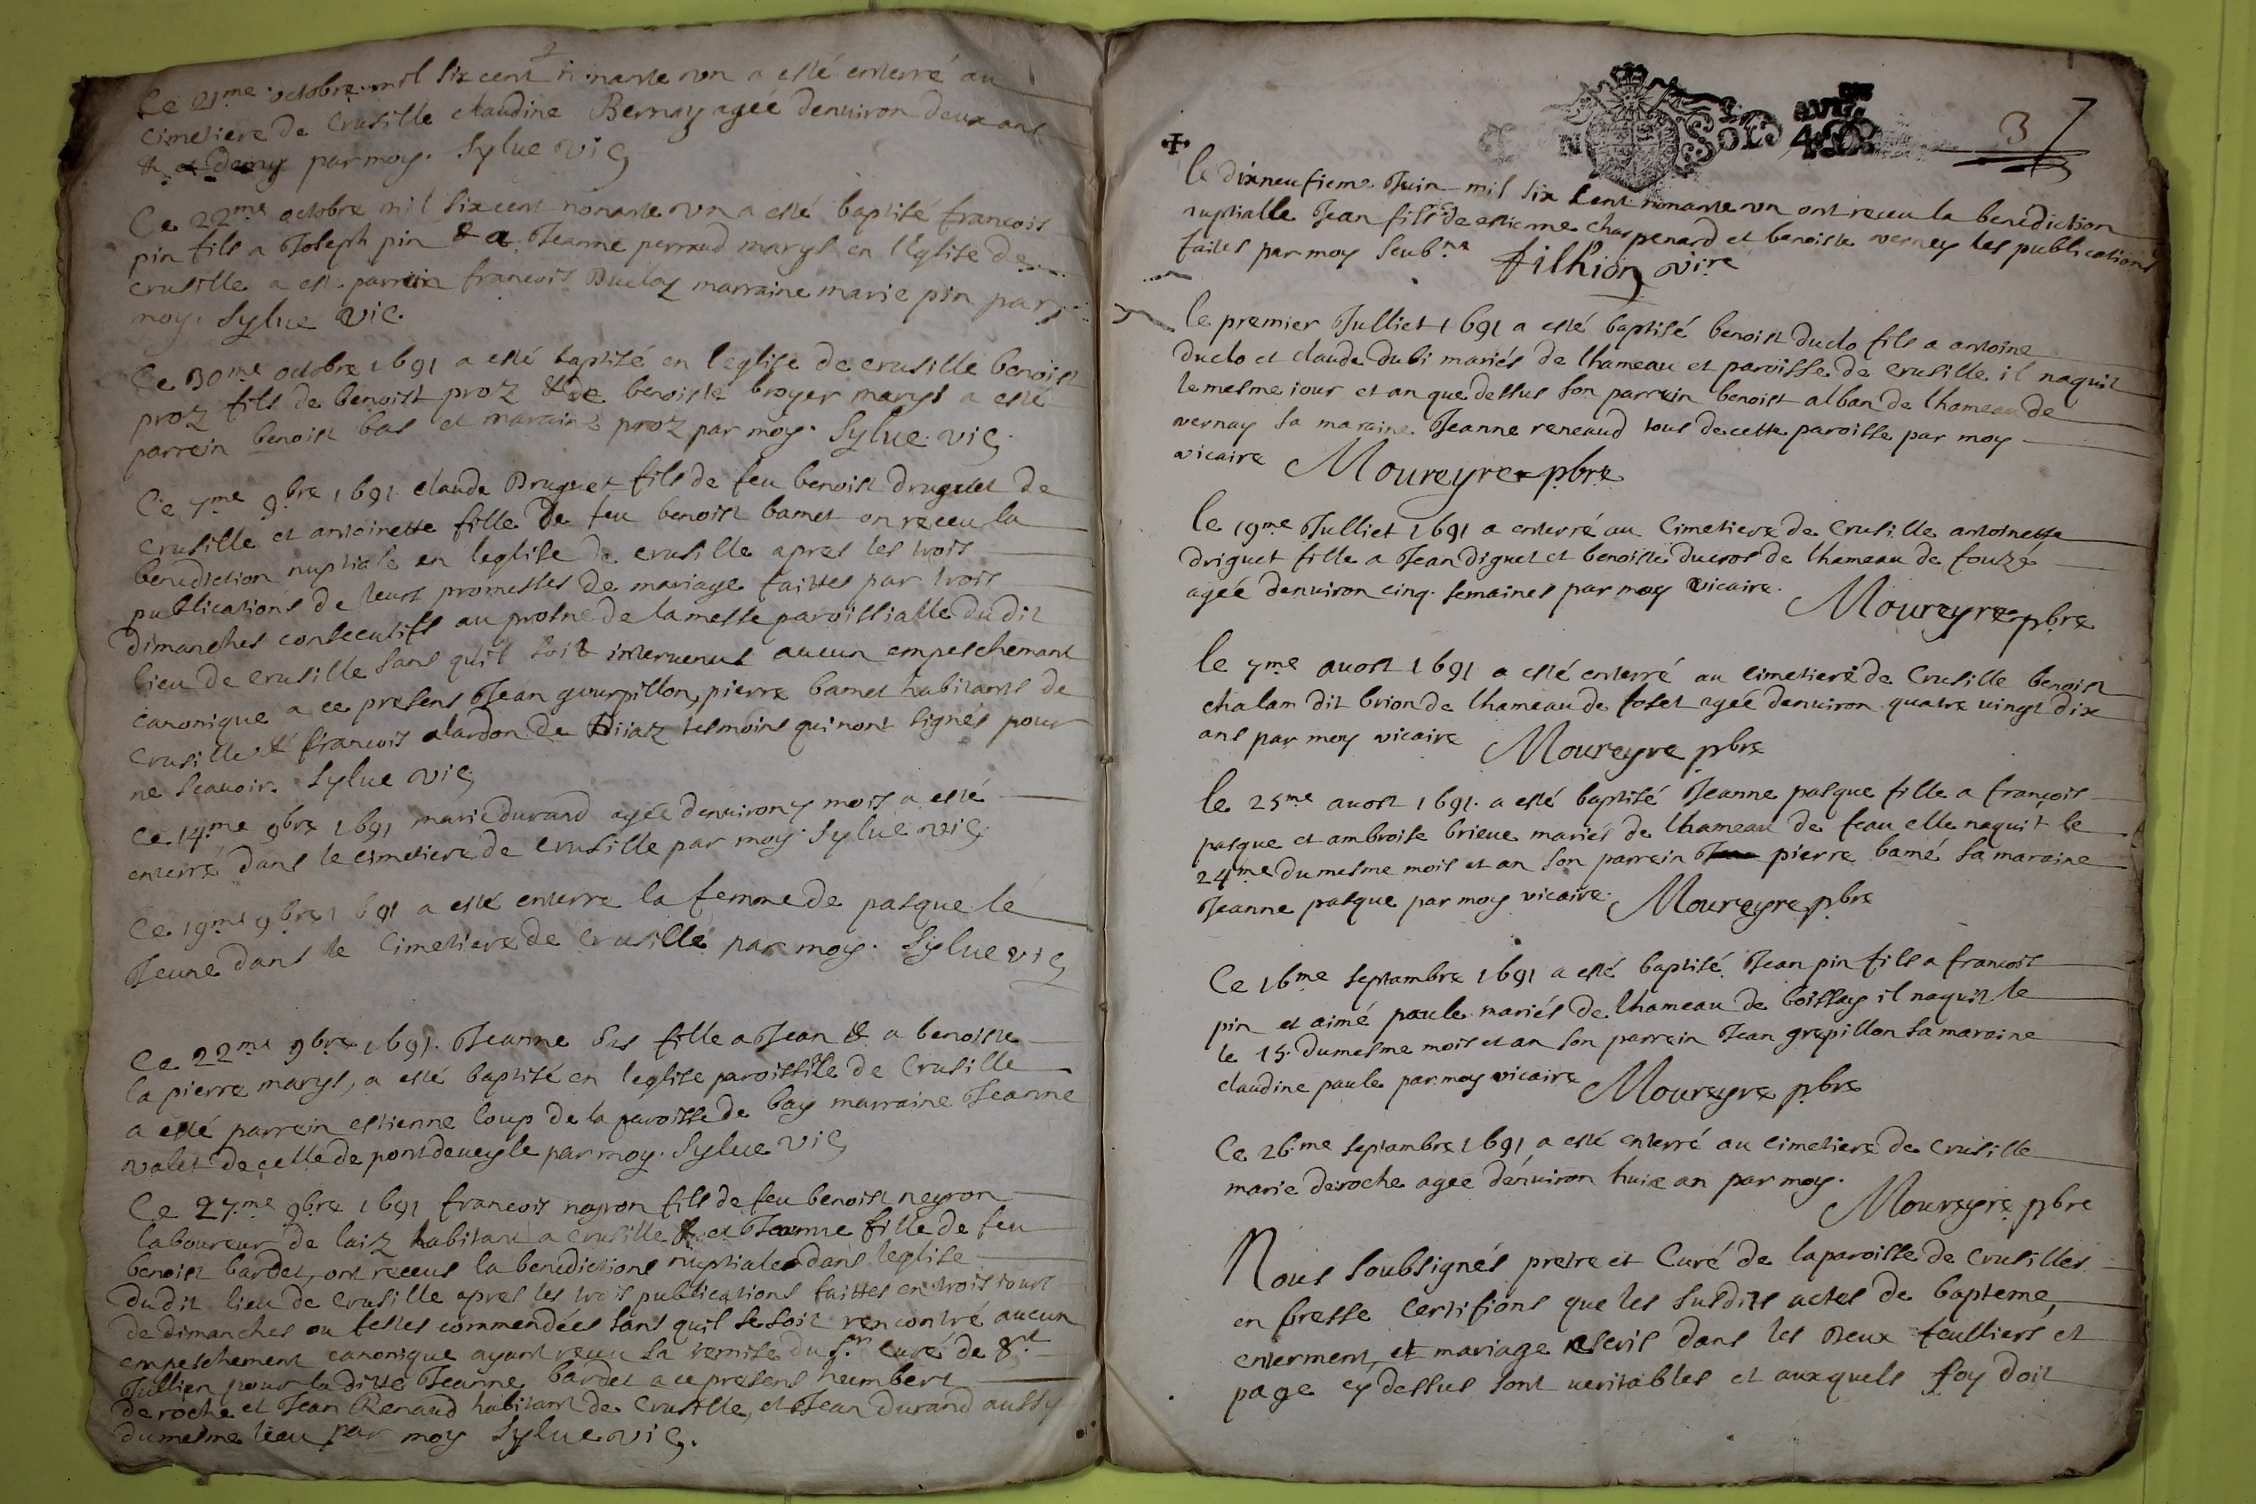 Ce 21me octobre mil six cent nonante un a esté enterré au
Cimetiere de Crusille claudine Bernay agée denuiron deux ans
& et demy par moy. Sylue vic
Ce 22me octobre mil six cent nonante un a esté baptisé francois
pin fils a Joseph pin & a Jeanne perraud maryt en l'Eglise de
crusille a esté parrein francois Ducloz marraine marie pin par
moy. Sylue vic.
Ce 30me octobre 1691 a esté baptisé en l'eglise de crusille benoist
proz fils de benoist proz & de benoiste broyer maryt a esté
parrein benoist bas et maraine proz par moy. Sylue. vic.
Ce 7me 9bre 1691 claude Druguet fils de feu benoist druguet de
crusille et antoinette fille de feu benoist bamet on receu la
benediction nuptiale en leglise de crusille apres les trois
publications de leurs promesses de mariage faittes par trois
dimanches consecutifs au prosne de la messe paroissialle du dit
lieu de crusille sans quil soit interuenut aucun empeschemant
canonique a ce presens Jean gourpillon, pierre bamet habitants de
crusille & francois alardon de tesmoins qui nont signés pour
ne scauoir. Sylue vic
Ce 14me 9bre 1691 marie durand agée denuiron 7 mois a esté
enterré dans le cimetiere de crusille par moy. Sylue vic.
Ce 19me 9bre 1691 a esté enterre la femme de pasque le
Jeune dans le Cimetiere de crusille par moy. Sylue vic
Ce 22me 9bre 1691. Jeanne bas fille a Jean & a benoiste
la pierre maryt, a esté baptisé en leglise paroissile de Crusille
a esté parrein estienne loup de la paroisse de bay marraine Jeanne
valet de celle de pontdeueyle par moy. Sylue vic
Ce 27me 9bre 1691 francois neyron fils de feu benoist neyron
laboureur de laiz habitant a Crusille & et Jeanne fille de feu
benoist bardet, ont receus la benedictions nuptiales dans leglise
dudit lieu de crusille apres les trois publications faittes en trois iours
de dimanches ou festes commendées sans quil se soit rencontré aucun
empeschement canonique ayant receu la remise du sr. curé de St
Jullien pour la ditte Jeanne bardet a ce presens heumbert
deroche et Jean Renaud habitant de Crusille, et Jean durand aussy
du mesme lieu par moy Sylue vic.
3
le dixneufieme Juin mil six cent nonante un ont receu la benediction
nuptialle Jean fils de estienne charpenard et benoiste verney les publications
faites par moy soubne filhion vire
le premier Julliet 1691 a esté baptisé benoist duclo fils a antoine
duclo et claude dubi mariés de lhameau et paroisse de crusille il naquit
le mesme iour et an que dessus son parrein benoist alban de lhameau de
vernay sa maraine Jeanne reneaud tous de cette paroisse par moy
vicaire Moureyre pbre
le 19me Julliet 1691 a enterré au Cimetiere de Crusille antoinette
driguet fille a Jean diguet et benoiste ducros de lhameau de fouzé
agée denuiron cinq. semaines par moy vicaire. Moureyre pbre
le 7me auost 1691 a esté enterré au cimetiere de Crusille benoist
chalam dit brion de lhameau de foset agée denuiron quatre vingt dix
ans par moy vicaire Moureyre pbre
le 25me auost 1691. a esté baptisé Jeanne pasque fille a françois
pasque et ambroise brieue mariés de lhameau de feau elle naquit le
24me du mesme mois et an son parrein pierre bamé sa maraine
Jeanne pasque par moy vicaire. Moureyre pbre
Ce 16me septambre 1691 a esté baptisé Jean pin fils a francois
pin et aimé paule mariés de lhameau de boissay il naquit le
le 15. du mesme mois et an son parrein Jean grepillon sa maraine
claudine paule par moy vicaire Moureyre pbre
Ce 26me septambre 1691 a esté enterré au cimetiere de Crusille
marie deroche agée d'enuiron huit an par moy.
Moureyre pbre
Nous soubsignés pretre et Curé de la paroisse de Crusilles
en bresse Certifions que les susdits actes de bapteme,
enterment, et mariage escris dans les deux feulliers et
page cy dessus sont ueritables et auxquels foy doit